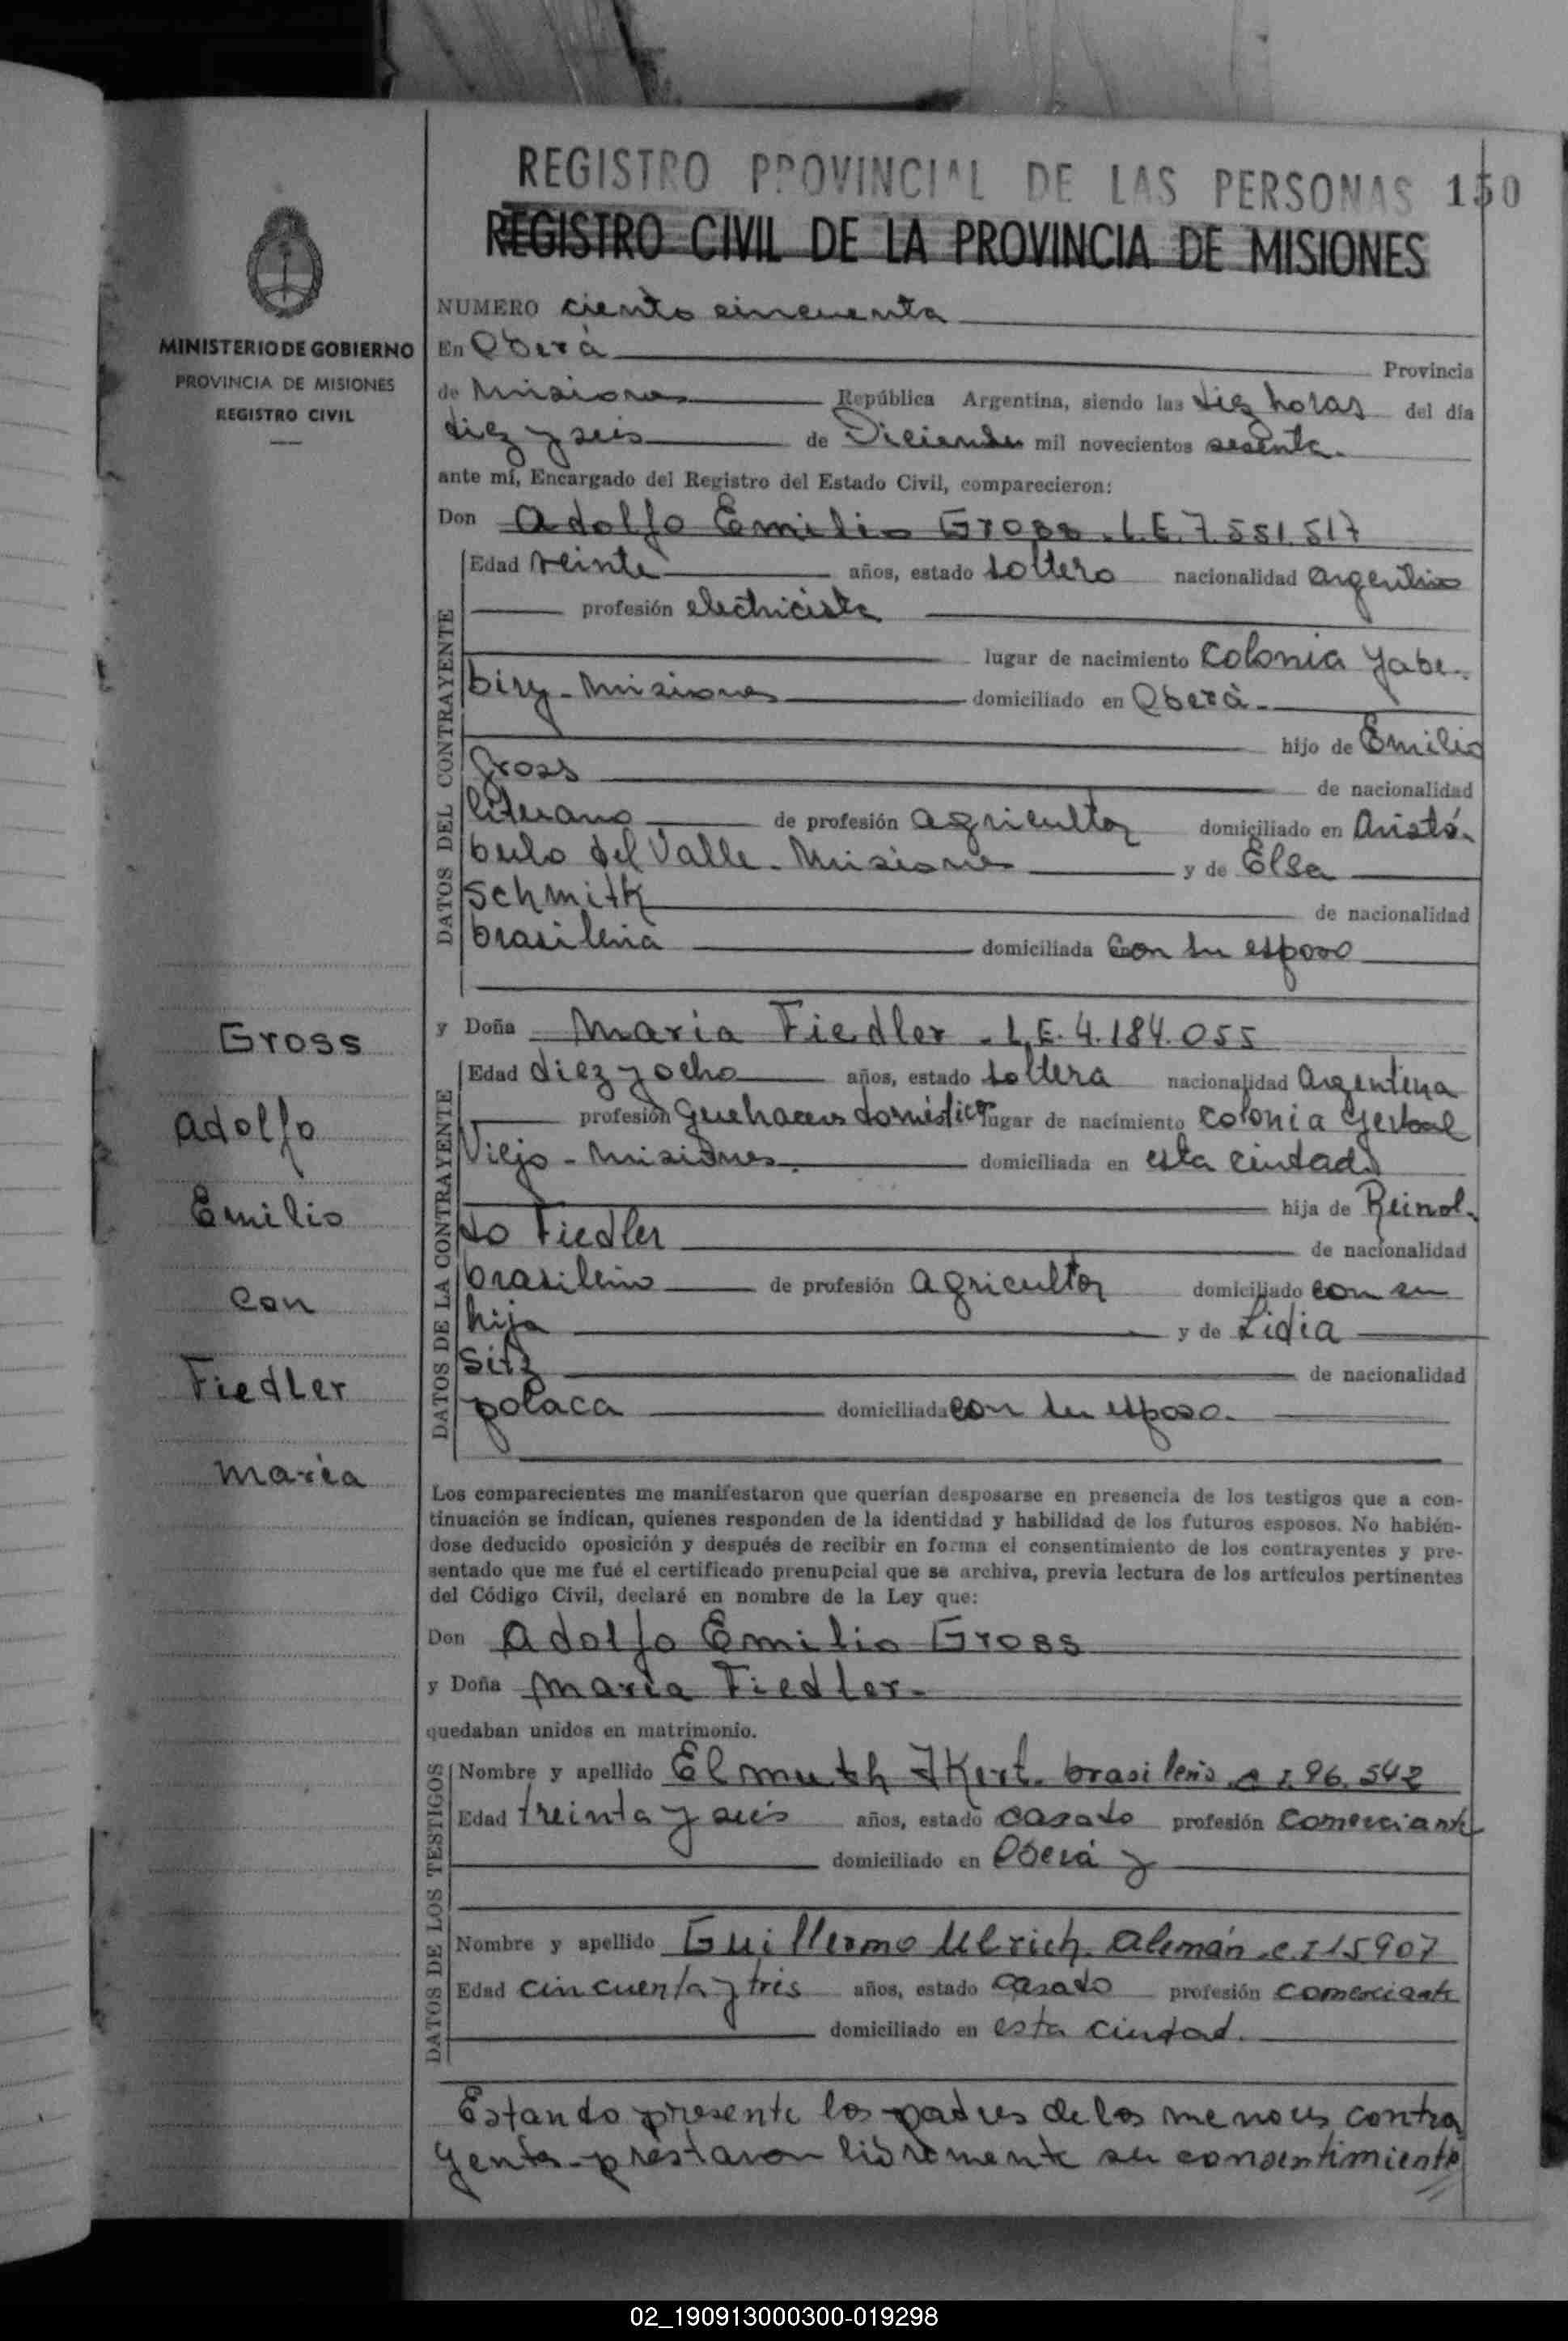 REGISTRO PROVINCIAL DE LAS PERSONAS 150
REGISTRO CIVIL DE LA PROVINCIA DE MISIONES
MINISTERIO DE GOBIERNO
PROVINCIA DE MISIONES
REGISTRO CIVIL
NUMERO ciento cincuenta
En Oberá Provincia
de Misiones República Argentina, siendo las diez horas del día
diez y seis de Diciembre mil novecientos sesenta.
ante mí, Encargado del Registro del Estado Civil, comparecieron:
Don Adolfo Emilio Gross. L.E. 7.551.517
DATOS DEL CONTRAYENTE
Edad veinte años, estado soltero nacionalidad argentino
profesión electricista
lugar de nacimiento Colonia Yabe-
biry-Misiones domiciliado en Oberá.
hijo de Emilio
Gross de nacionalidad
lituano de profesión agricultor domiciliado en Aristó-
bulo del Valle. Misiones y de Elsa
Schmitk de nacionalidad
brasileña domiciliada con su esposo
y Doña Maria Fiedler. L.E. 4.184.055
DATOS DE LA CONTRAYENTE
Edad diez y ocho años, estado soltera nacionalidad Argentina
profesión quehaceres domésticos lugar de nacimiento Colonia Yerbal
Viejo-Misiones. domiciliada en esta ciudad
hija de Reinol-
do Fiedler de nacionalidad
brasileño de profesión agricultor domiciliado con su
hija y de Lidia
Sitz de nacionalidad
polaca domiciliada con su esposo.
Gross
Adolfo
Emilio
con
Fiedler
María
Los comparecientes me manifestaron que querían desposarse en presencia de los testigos que a con-
tinuación se indican, quienes responden de la identidad y habilidad de los futuros esposos. No habién-
dose deducido oposición y después de recibir en forma el consentimiento de los contrayentes y pre-
sentado que me fué el certificado prenupcial que se archiva, previa lectura de los artículos pertinentes
del Código Civil, declaré en nombre de la Ley que:
Don Adolfo Emilio Gross
y Doña María Fiedler.
quedaban unidos en matrimonio.
DATOS DE LOS TESTIGOS
Nombre y apellido Elmuth Ikert. brasileño c.I. 96.542
Edad treinta y seis años, estado casado profesión comerciante
domiciliado en Oberá y
Nombre y apellido Guillermo Ulrich. Alemán. c.I 15907
Edad cincuenta y tres años, estado casado profesión comerciante
domiciliado en esta ciudad.
Estando presente los padres de los menores contra
yentes prestaron libremente su consentimiento
02_190913000300-019298